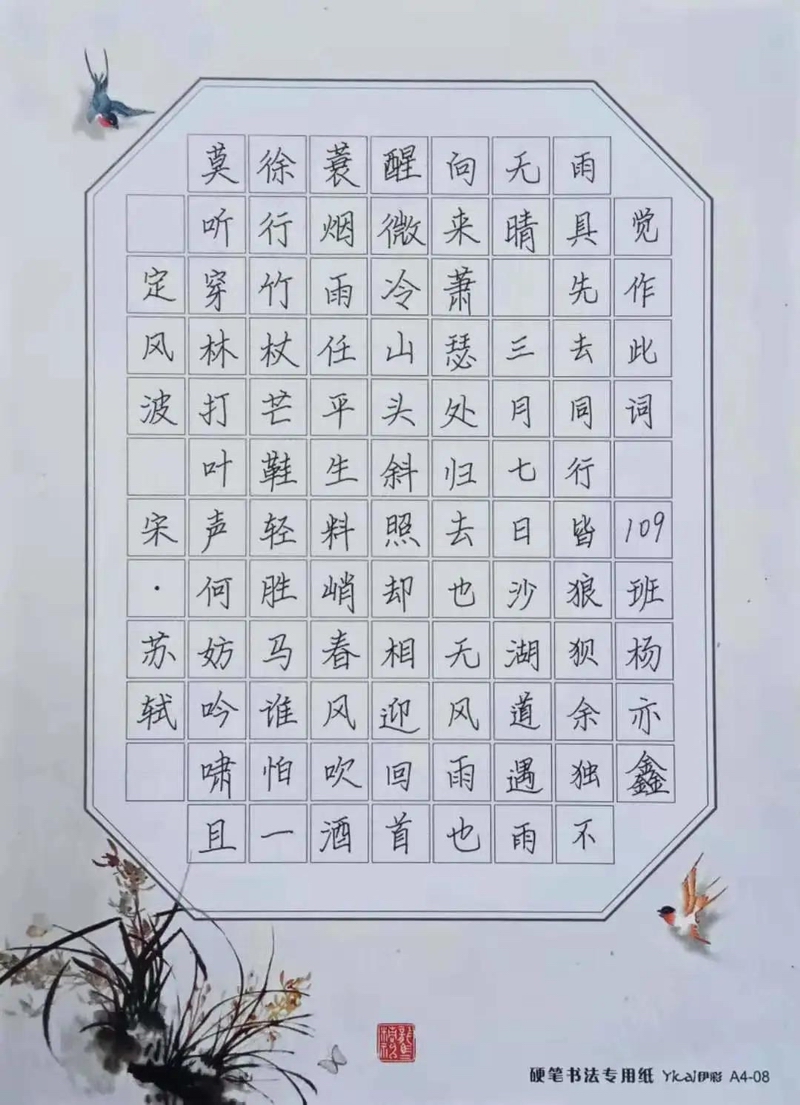 定风波 宋·苏轼
莫听穿林打叶声何妨吟啸且
徐行竹杖芒鞋轻胜马谁怕一
蓑烟雨任平生料峭春风吹酒
醒微冷山头斜照却相迎回首
向来萧瑟处归去也无风雨也
无晴 三月七日沙湖道遇雨
雨具先去同行皆狼狈余独不
觉作此词 109班杨亦鑫
硬笔书法专用纸 Yicai伊彩 A4-08